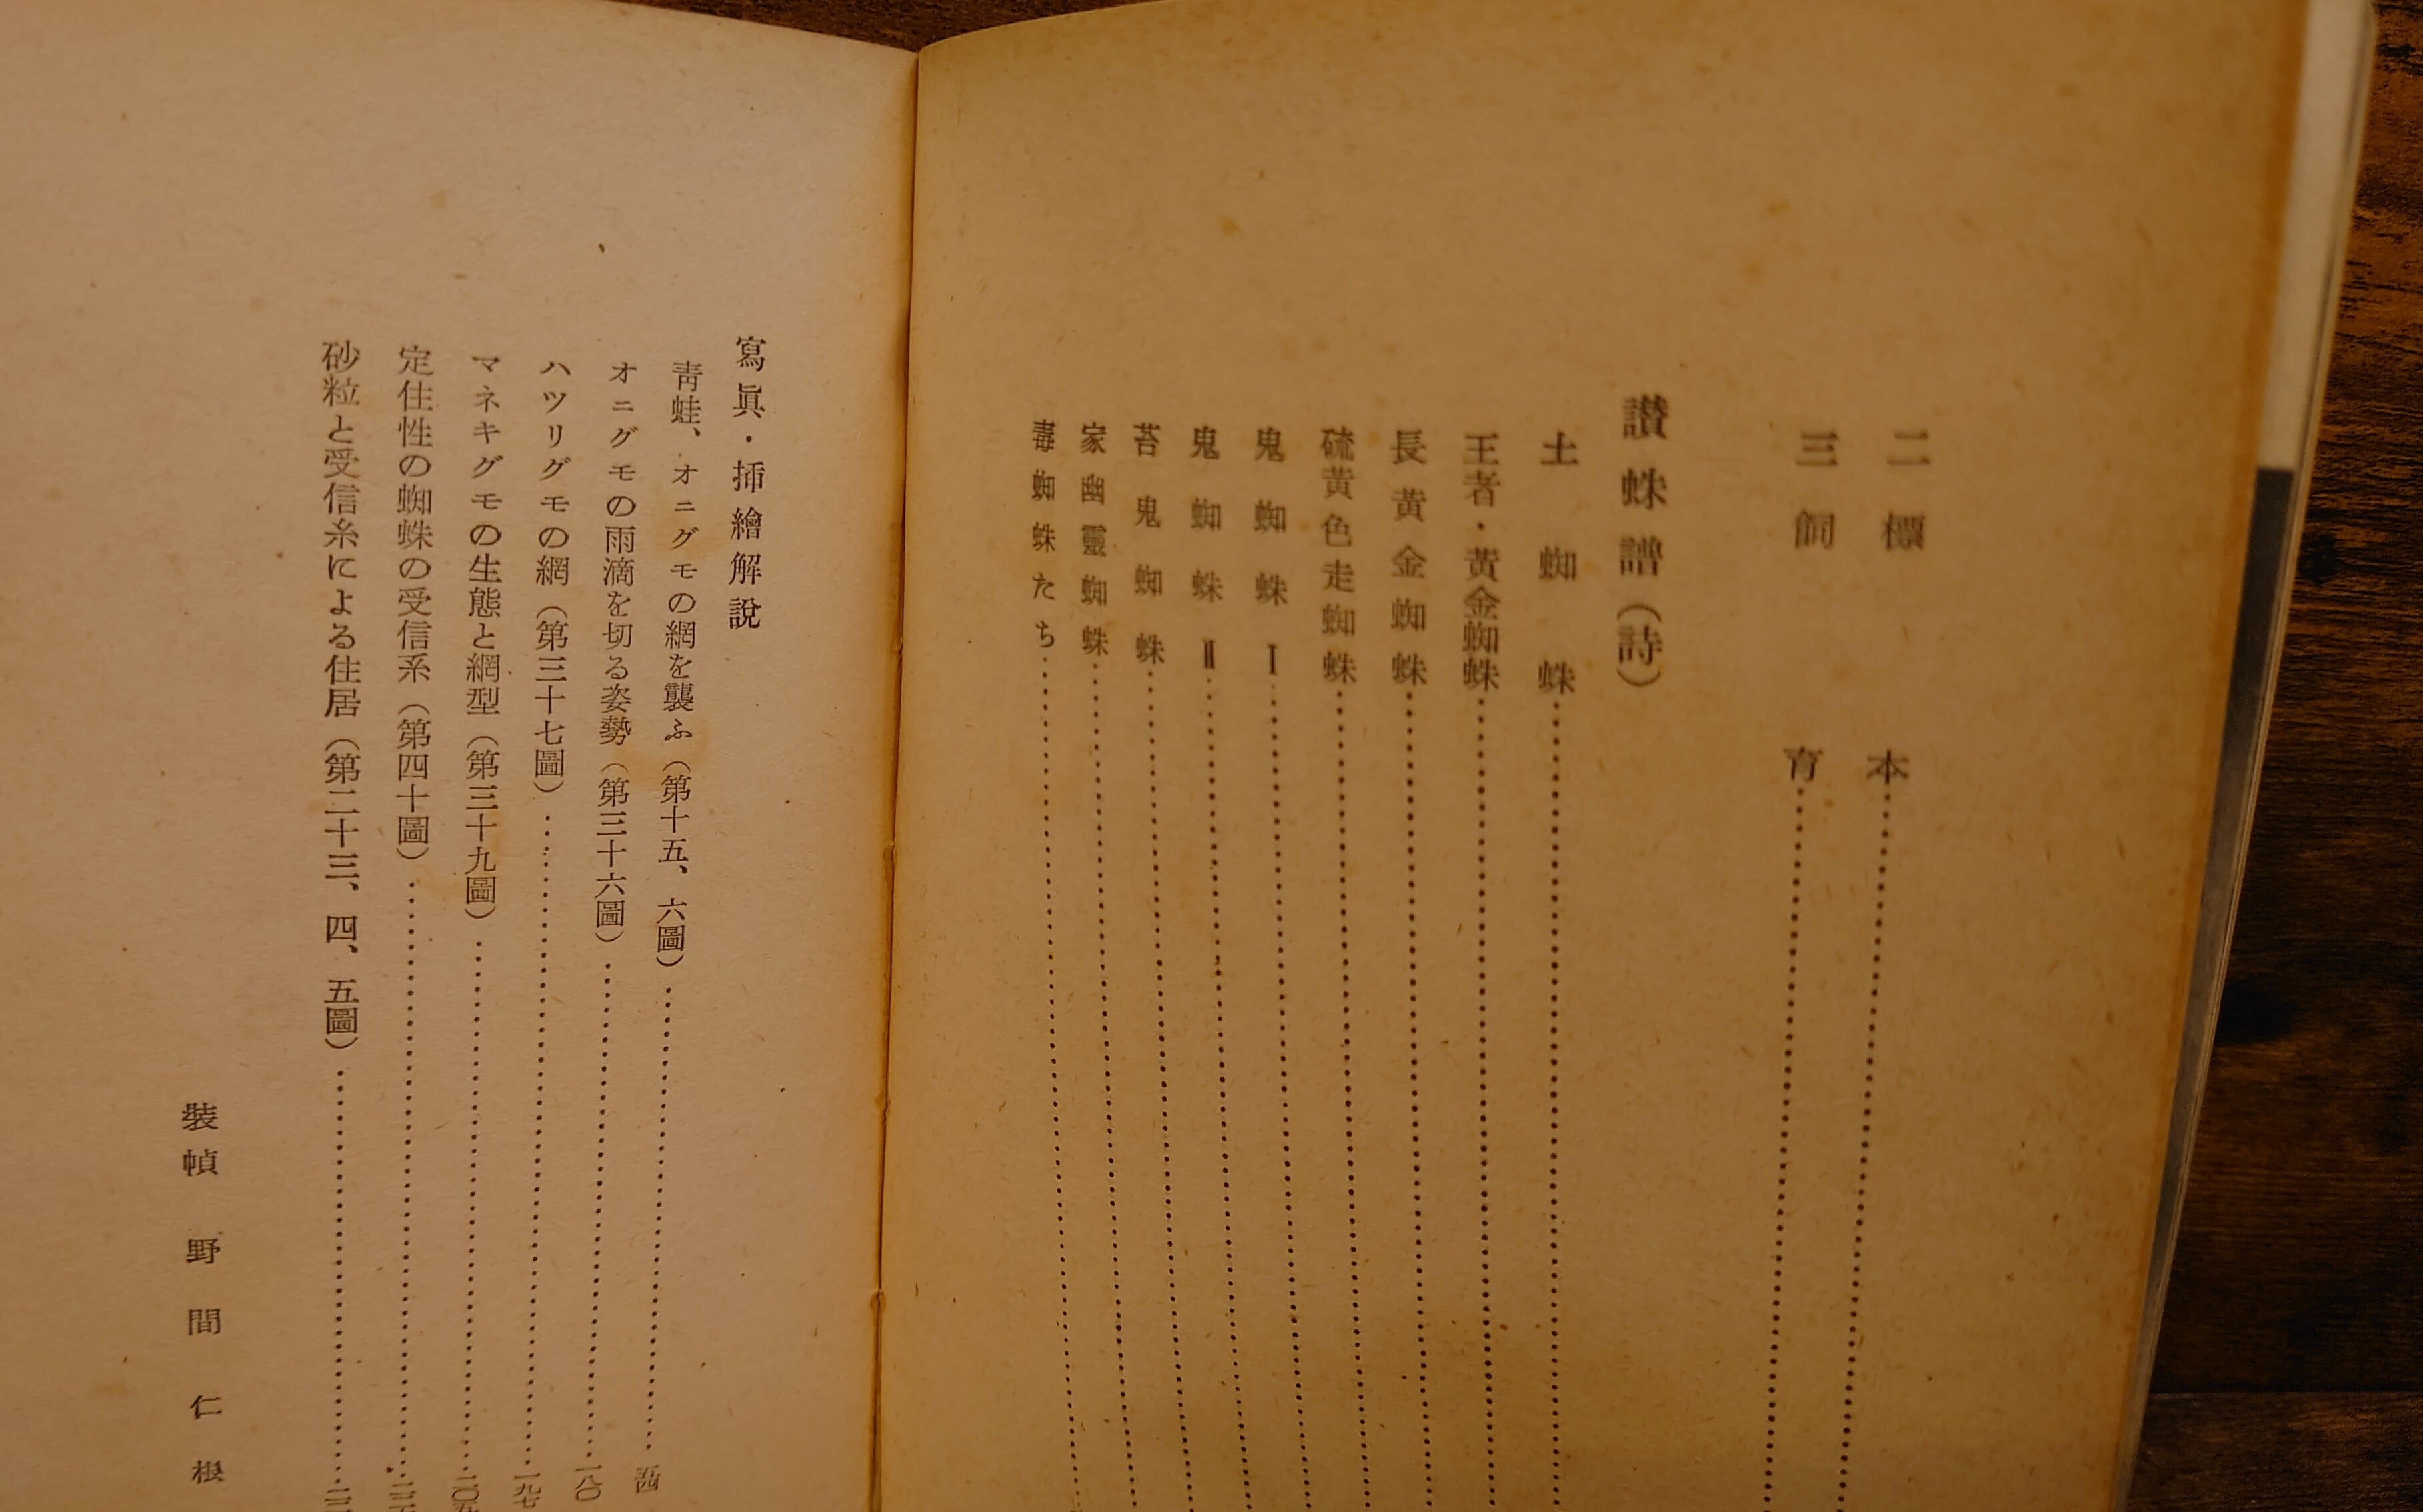 二 標 本
三 飼 育
讃蛛譜(詩)
土蜘蛛
王者・黃金蜘蛛
長黃金蜘蛛
硫黃色走蜘蛛
鬼蜘蛛 Ⅰ
鬼蜘蛛 Ⅱ
苔鬼蜘蛛
家幽靈蜘蛛
毒蜘蛛たち
寫眞・揷繪解說
靑蛙、オニグモの網を襲ふ(第十五、六圖)……五四
オニグモの雨滴を切る姿勢(第三十六圖)……一八〇
ハツリグモの網(第三十七圖)……一九七
マネキグモの生態と網型(第三十九圖)……二〇五
定住性の蜘蛛の受信系(第四十圖)
砂粒と受信糸による住居(第二十三、四、五圖)
裝幀 野間仁根